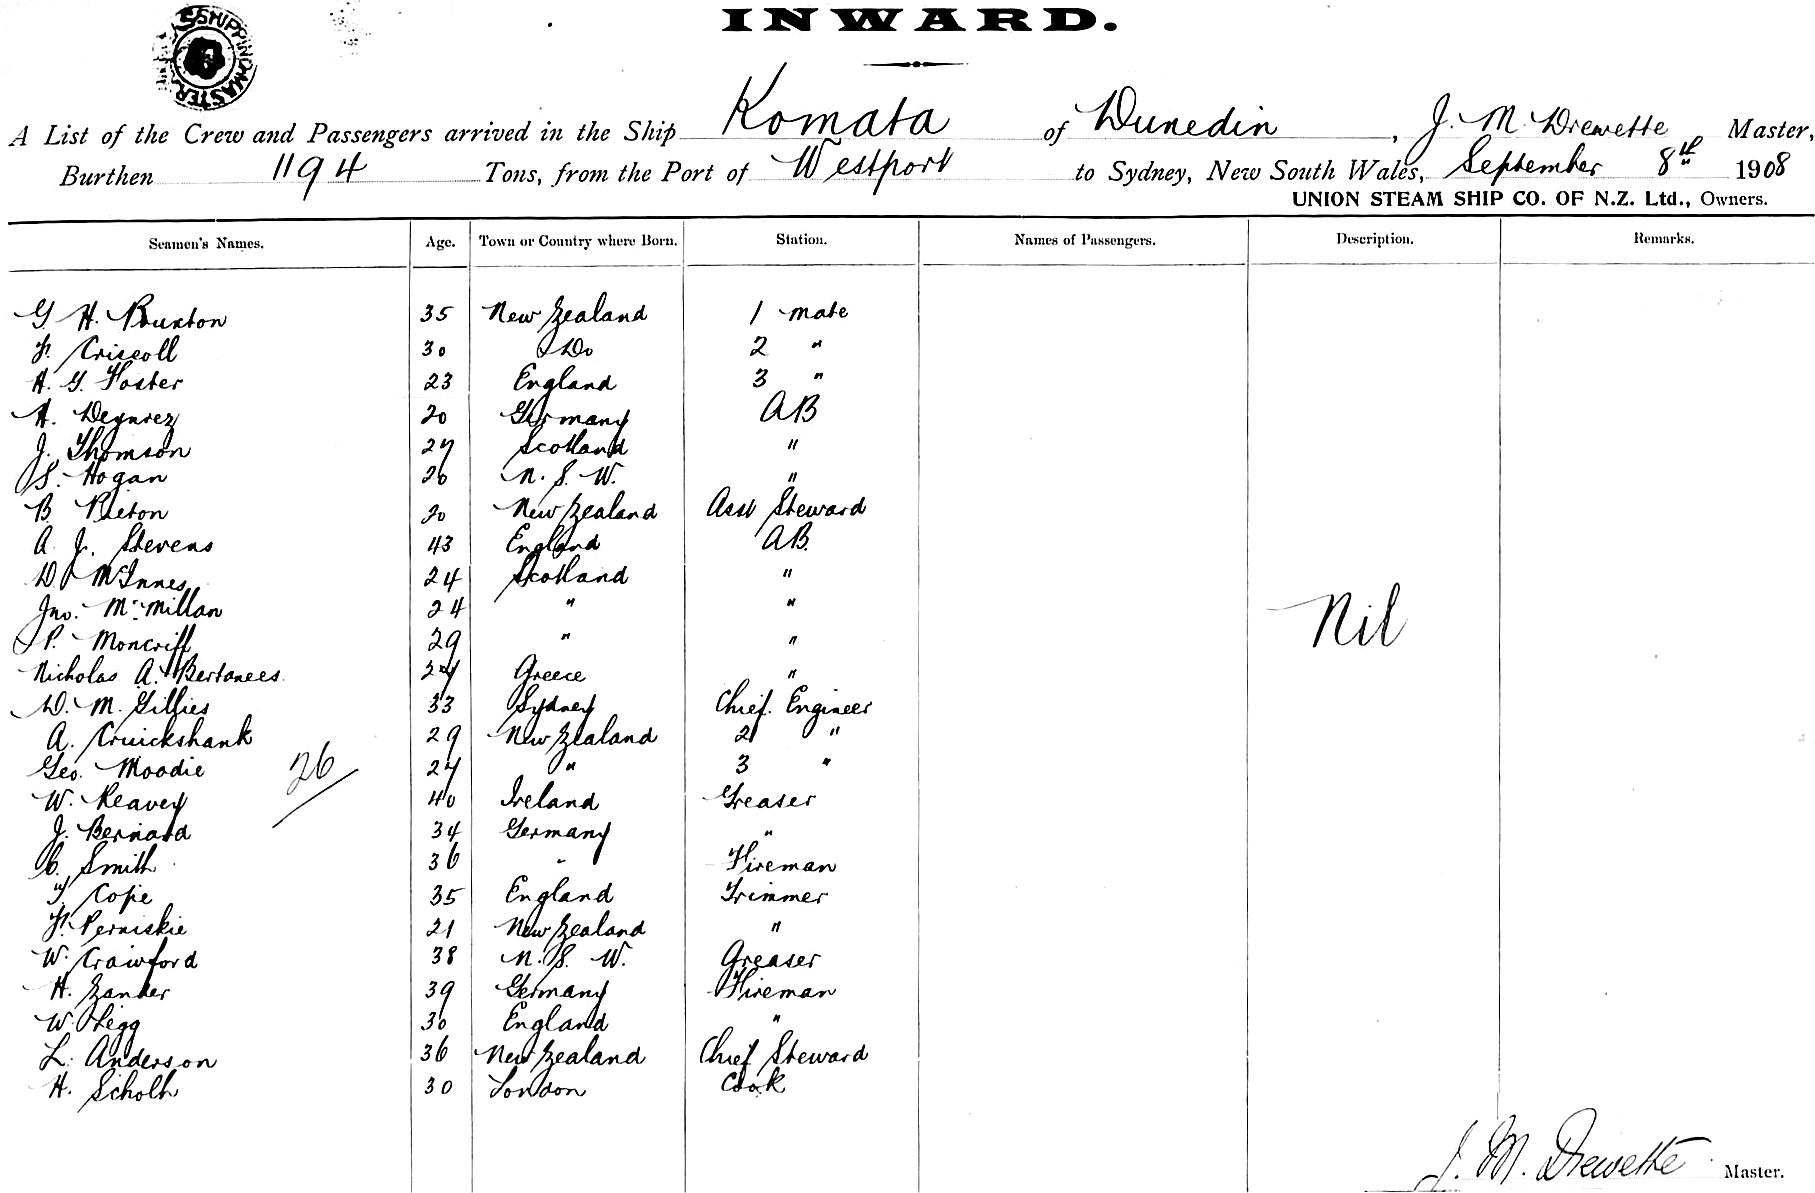 SHIPPING MASTER
INWARD.
A List of the Crew and Passengers arrived in the Ship Komata of Dunedin, J. M. Drewette Master,
Burthen 1194 Tons, from the Port of Westport to Sydney, New South Wales, September 8th 1908
UNION STEAM SHIP CO. OF N.Z. Ltd., Owners.
Seamen's Names. Age. Town or Country where Born. Station. Names of Passengers. Description. Remarks.
G H. Buxton 35 New Zealand 1 mate
F. Criscoll 30 Do 2 "
H. G. Foster 23 England 3 "
H. 20 Germany AB
J. Thomson 27 Scotland "
S. Hogan 26 N. S. W. "
B 20 New Zealand Asst Steward
A. J. Stevens 43 England AB.
D McInnes 24 Scotland "
Jno. McMillan 24 " "
P. Moncriff 29 " "
Nil
Nicholas A. Bertanees 27 Greece "
D. M. Gillies 33 Sydney Chief. Engineer
A. Cruickshank 29 New Zealand 2 "
Geo. Moodie 27 " 3 "
26
W. Reavey 40 Ireland Greaser
J. Bernard 34 Germany "
C. Smith 36 " Fireman
Cope 35 England Trimmer
F. Perniskie 21 New Zealand "
W. Crawford 38 N. S. W. Greaser
H. Zander 39 Germany Fireman
W. Legg 30 England "
L. Anderson 36 New Zealand Chief Steward
H. Scholh 30 London Cook
J. M. Drewette Master.